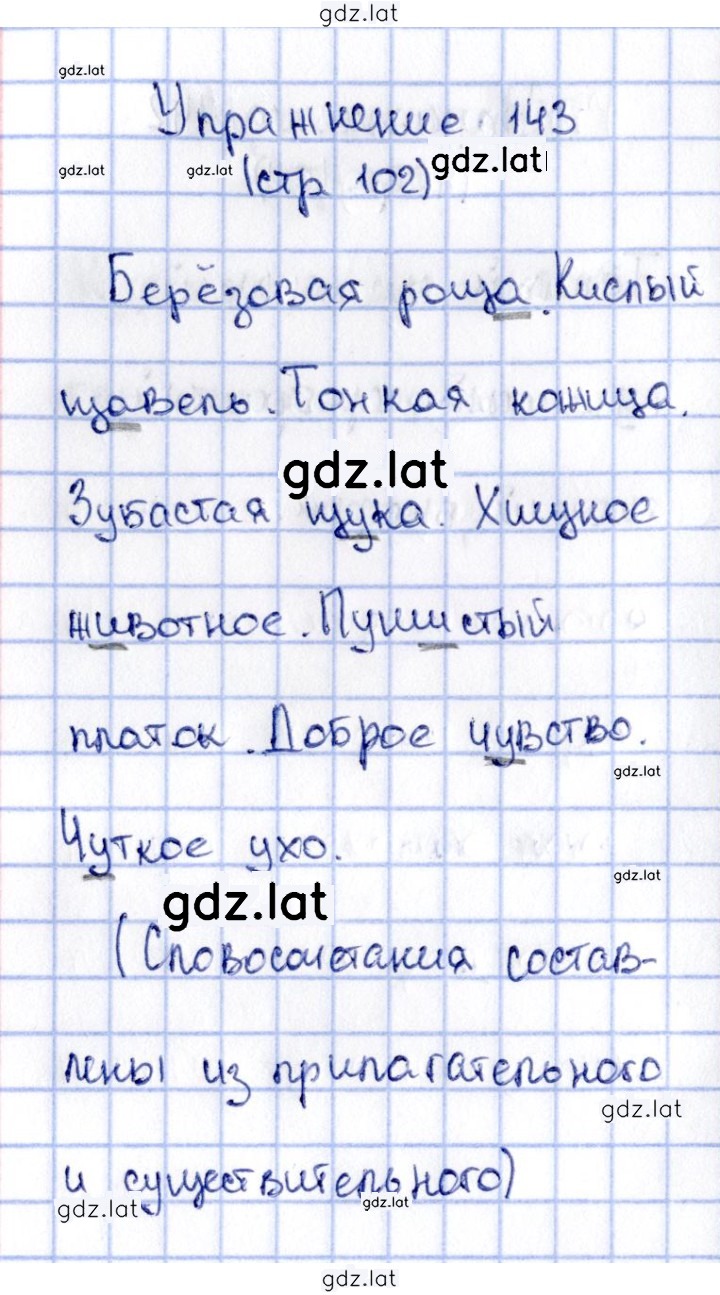 gdz.lat
gdz.lat
Упражнение 143
gdz.lat gdz.lat (стр 102) gdz.lat
Берёзовая роща. Кислый
щавель. Тонкая кожица.
gdz.lat
Зубастая щука. Хищное
животное. Пушистый
платок. Доброе чувство.
gdz.lat
Чуткое ухо.
gdz.lat
gdz.lat
(Словосочетания состав-
лены из прилагательного
gdz.lat
и существительного)
gdz.lat gdz.lat
gdz.lat